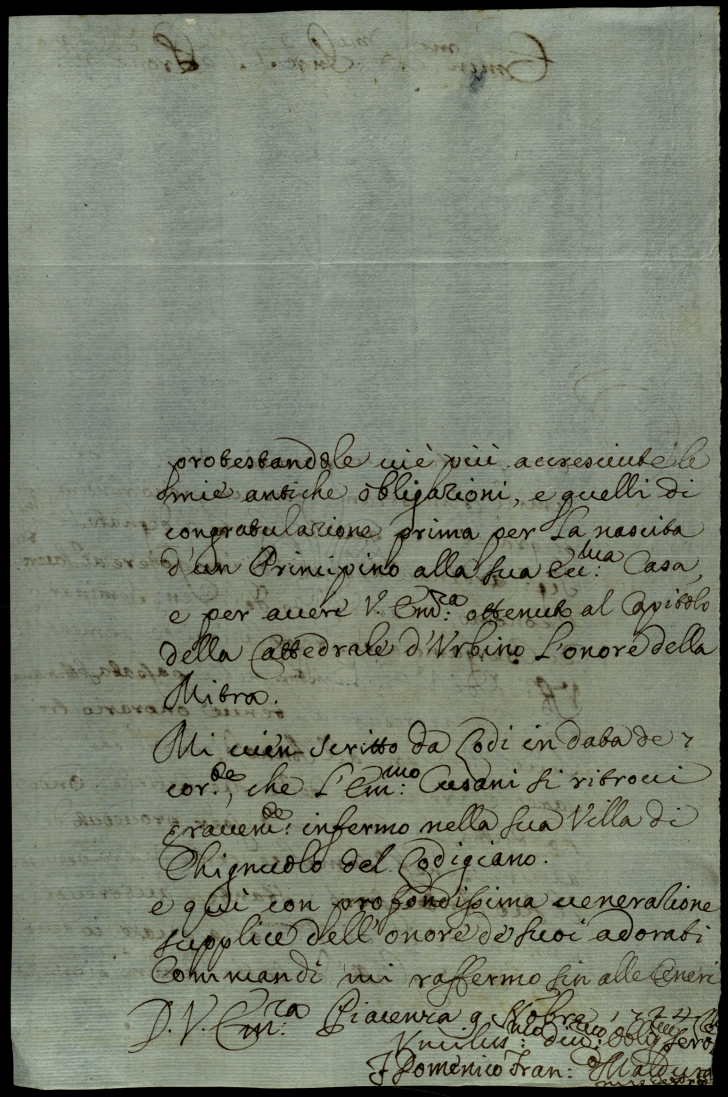 protestandole viè più accresciute le
mie antiche obligazioni, e quelli di
congratulazione prima per La nascita
d'un Principino alla sua Ecc:ma Casa,
e per avere V. Em:za ottenuto al Capitolo
della Cattedrale d'Urbino L'onore della
Mitra.
Mi vien scritto da Lodi in data de 7
cor:te, che L'Em:mo Cusani si ritrovi
gravem:te infermo nella sua Villa di
Chignuolo del Lodigiano.
e qui con profondissima venerazione
supplice dell'onore de suoi adorati
Commandi mi raffermo sin alle Ceneri
D. V. Em:za Piacenza 9 Nobre 1724
Humilis:mo div:mo oblig:mo Ser:
F Domenico Fran: